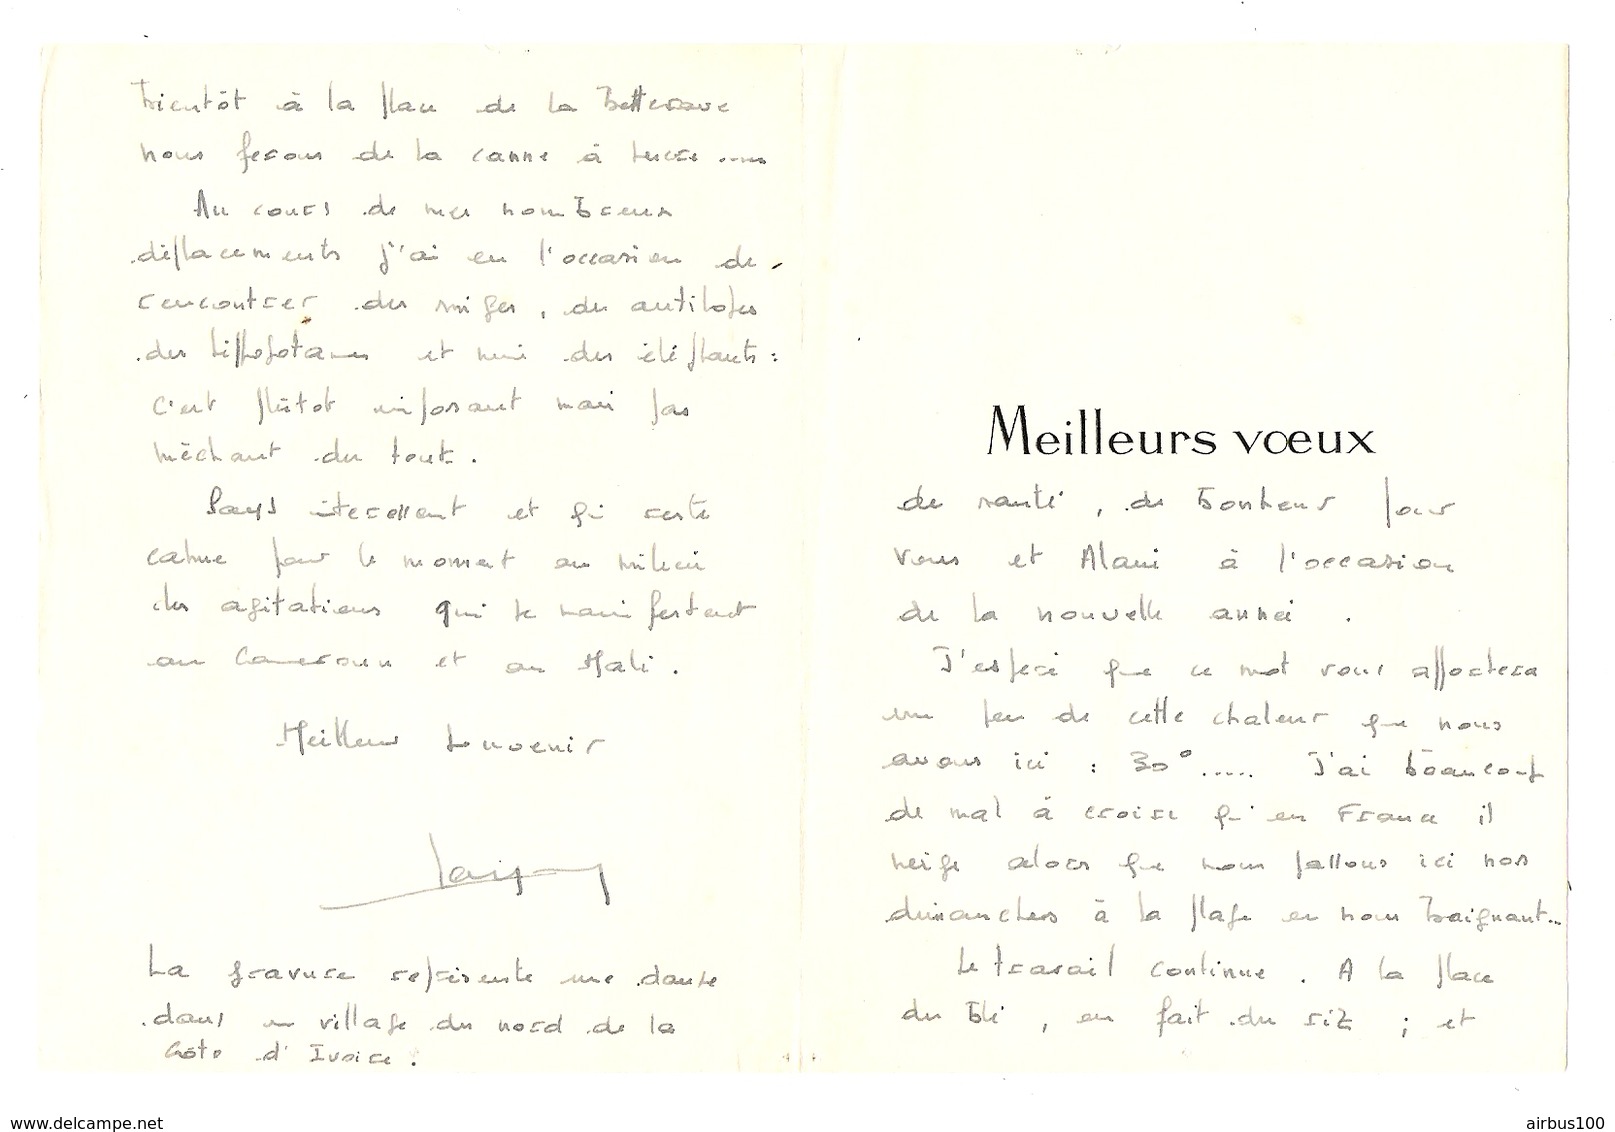 Meilleurs vœux
de santé, de bonheur pour
vous et Alain à l'occasion
de la nouvelle année.
J'espère que ce mot vous apportera
un peu de cette chaleur que nous
avons ici : 30°..... J'ai beaucoup
de mal à croire qu'en France il
neige alors que nous passons ici nos
dimanches à la plage en nous baignant...
Le travail continue. A la place
du blé, on fait du riz ; et
bientôt à la place de la Betterave
nous ferons de la canne à sucre.....
Au cours de mes nombreux
déplacements j'ai eu l'occasion de
rencontrer des singes, des antilopes
des hippopotames et même des éléphants :
c'est plutôt imposant mais pas
méchant du tout.
Pays intéressant et qui reste
calme pour le moment au milieu
des agitations qui se manifestent
au Cameroun et au Mali.
Meilleur souvenir
La gravure représente une danse
dans un village du nord de la
Côte d'Ivoire.
www.delcampe.net
airbus100